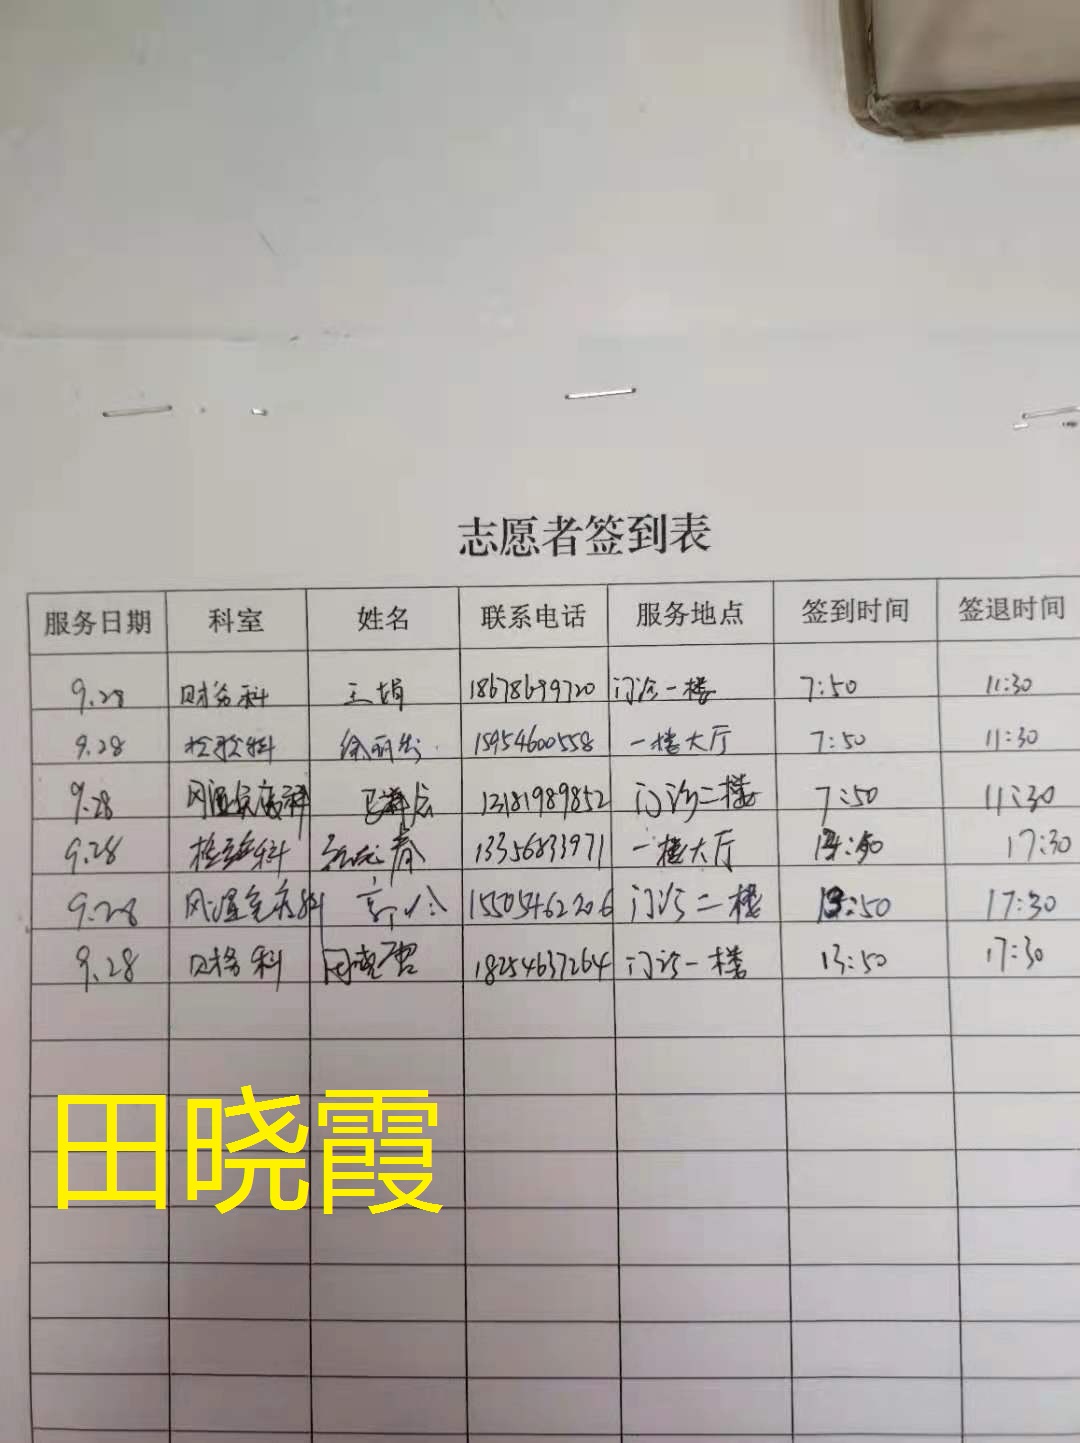 志愿者签到表
服务日期 科室 姓名 联系电话 服务地点 签到时间 签退时间
9.28 财务科 王娟 18678699720 门诊一楼 7:50 11:30
9.28 检验科 15954600558 一楼大厅 7:50 11:30
9.28 风湿免疫科 13181989852 门诊二楼 7:50 11:30
9.28 检验科 13356833971 一楼大厅 17:30
9.28 风湿免疫科 15505462206 门诊二楼 13:50 17:30
9.28 财务科 18254637264 门诊一楼 13:50 17:30
田晓霞